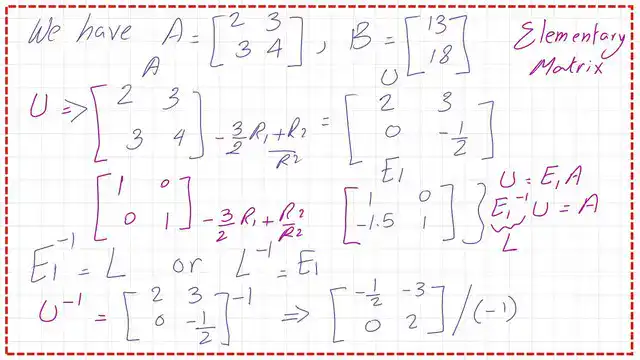 We have A = [2 3; 3 4], B = [13; 18] Elementary Matrix
A U
U => [2 3; 3 4] -3/2 R1 + R2 / R2 = [2 3; 0 -1/2]
E1
[1 0; 0 1] -3/2 R1 + R2 / R2 [1 0; -1.5 1] } U = E1 A
E1^-1 U = A
L
E1^-1 = L or L^-1 = E1
U^-1 = [2 3; 0 -1/2]^-1 => [-1/2 -3; 0 2] / (-1)